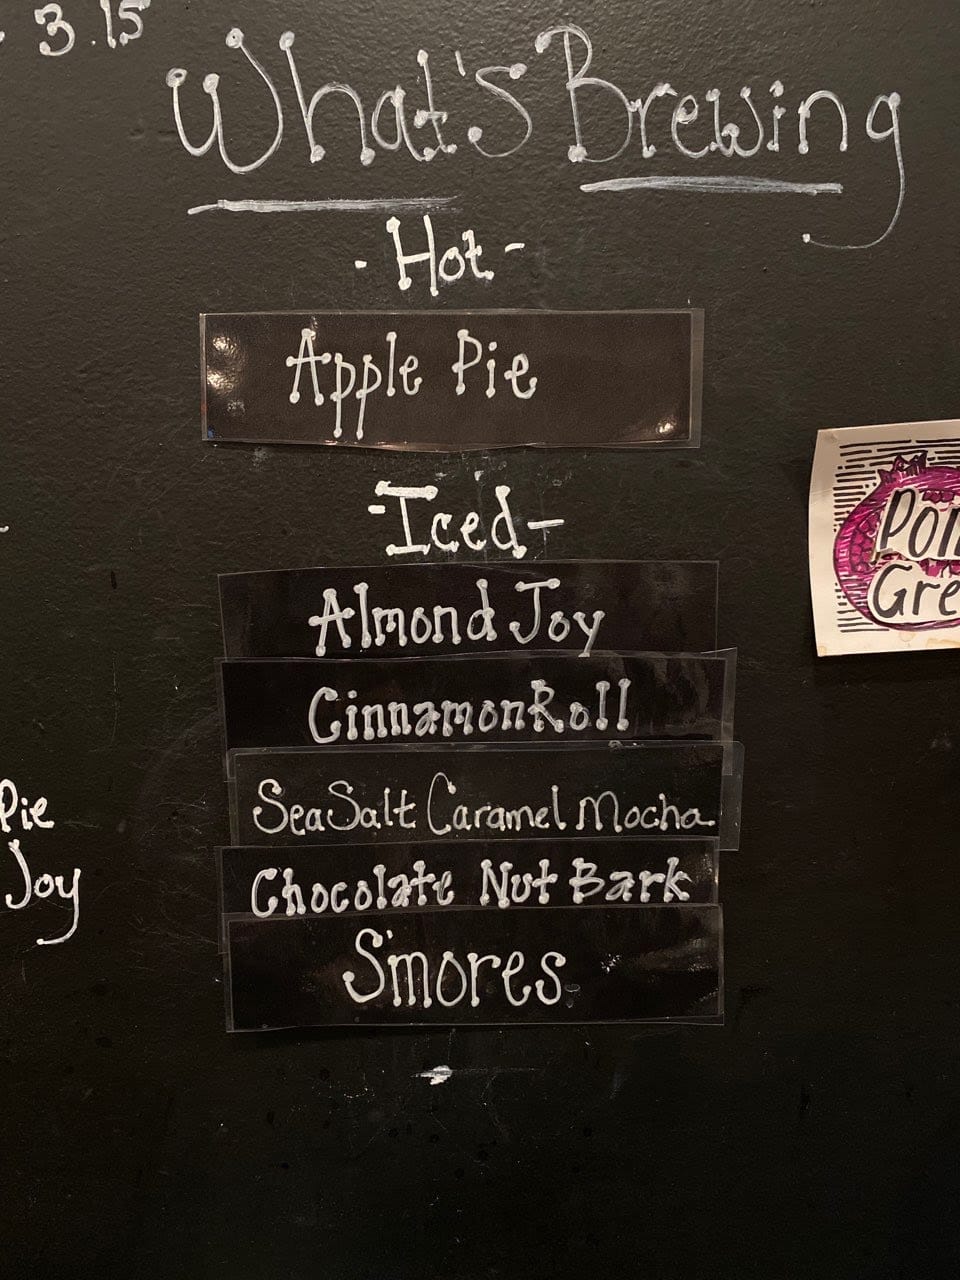 3.15
What's Brewing
- Hot -
Apple Pie
-Iced-
Almond Joy
Cinnamon Roll
Sea Salt Caramel Mocha
Chocolate Nut Bark
S'mores
Pie
Joy